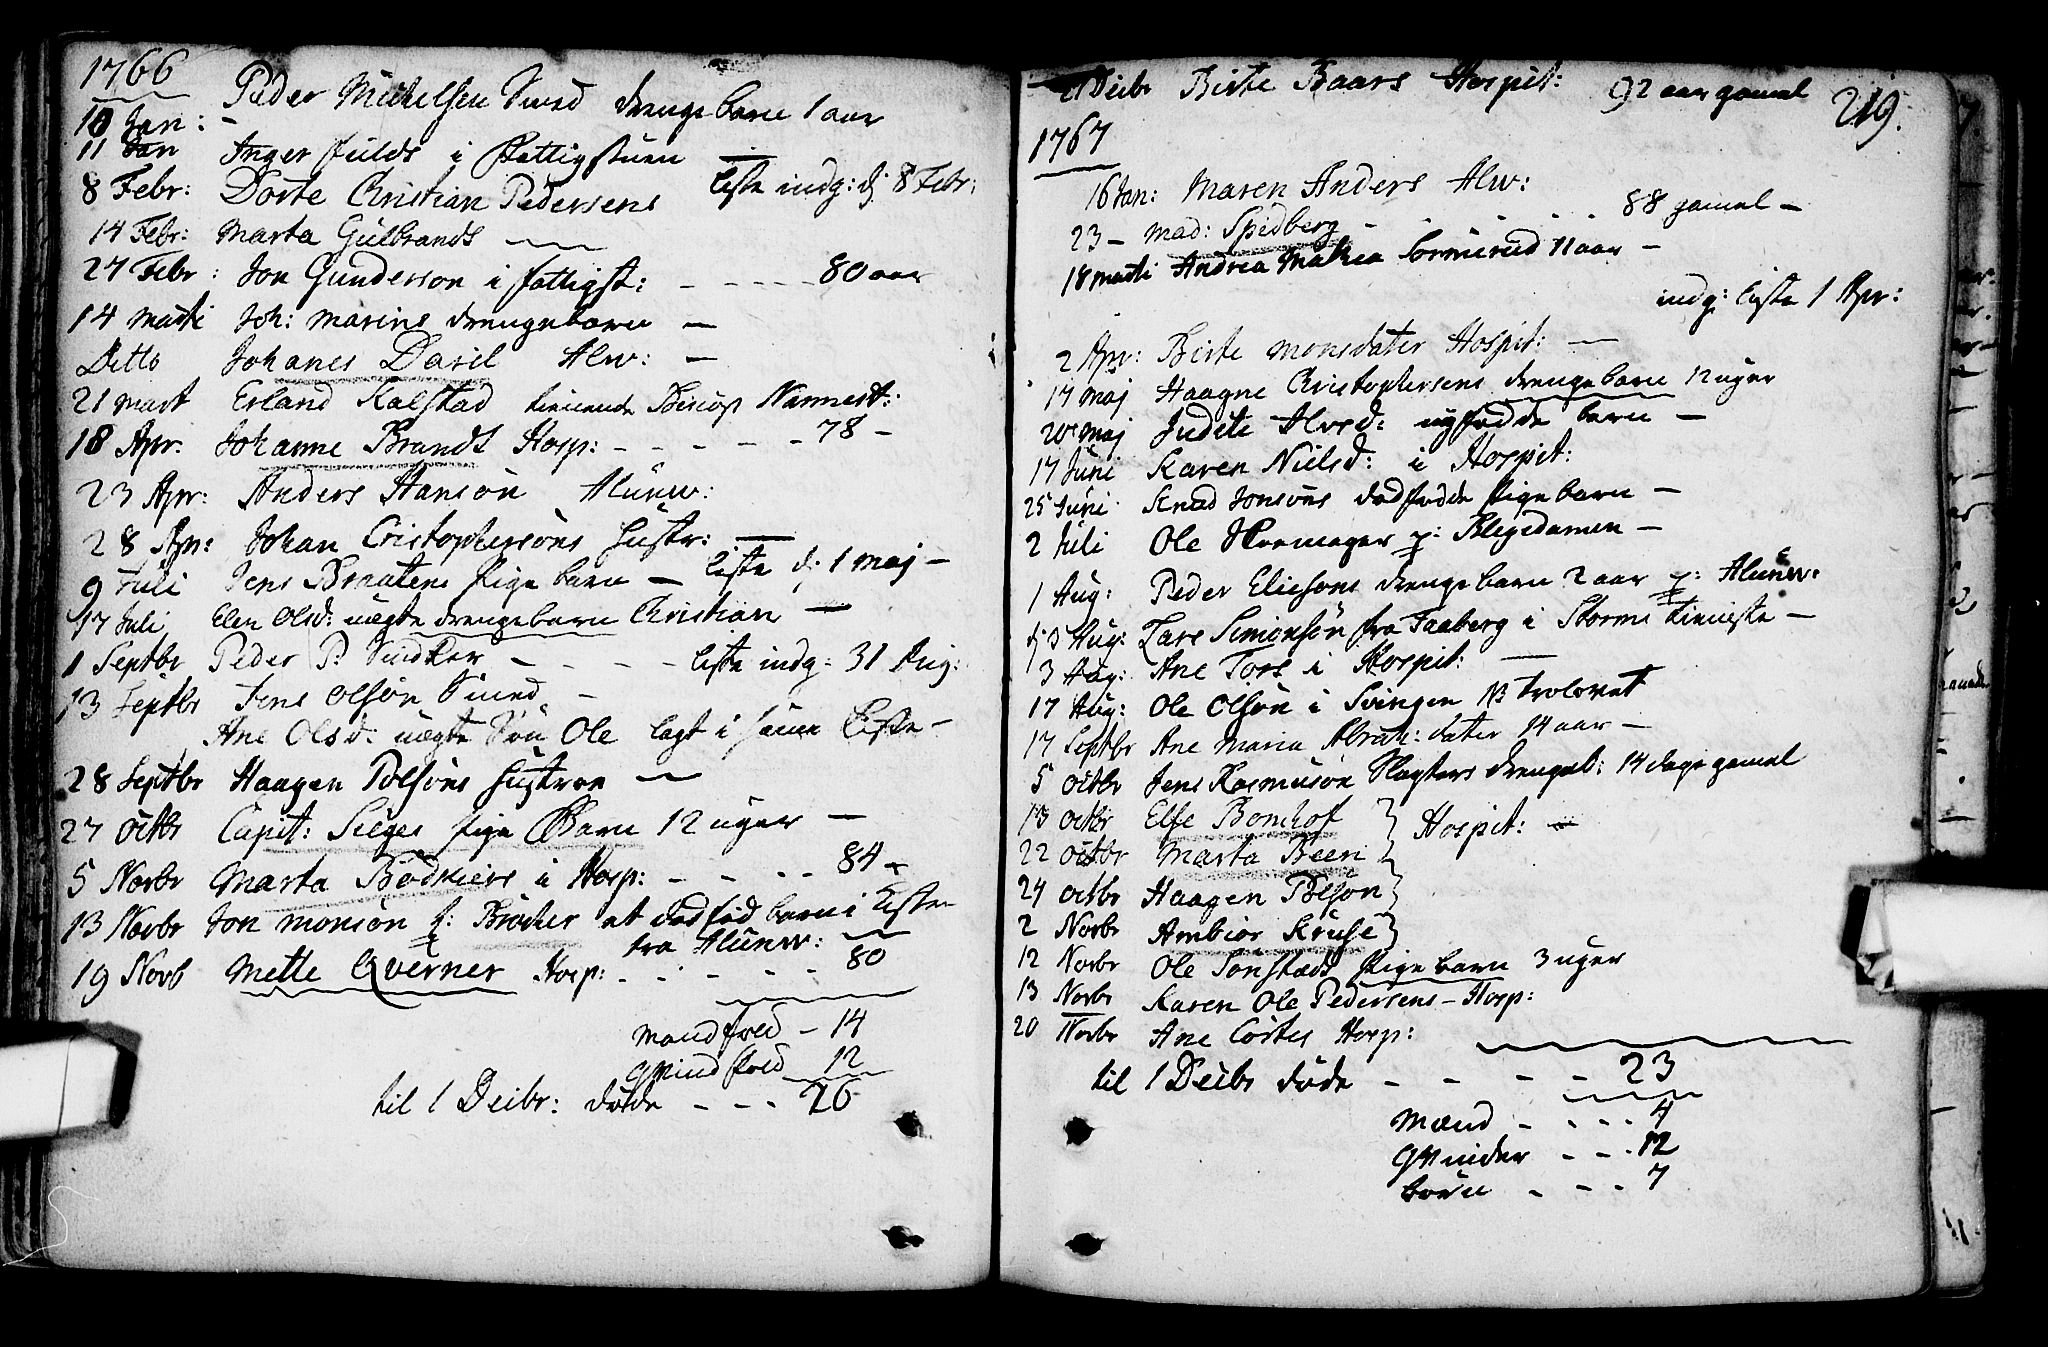 1766
10 Jan: - Peder Michelsen Smed drengebarn 1 aar
11 Jan Inger fulds i fattigstuen —
8 Febr: Dorte Christian Pedersens liste indg: d. 8 Febr:
14 Febr: Marta Gulbrands —
27 Febr: Jon Gunderson i fattigst: - - - - - 80 aar
14 Marti Joh: Marins drengebarn —
Ditto Johanes Daril Alw: —
21 Mart Erland Kalstad tienende Nannest:
18 Apr. Johanne Brands Hosp: - - - - - 78 -
23 Apr: Anders Hanson Alunw:
28 Apr: Johan Cristophersöns hustr: —
9 Juli Jens pige barn — liste d. 1 Maj —
17 Juli Elen Olsd: uægte drengebarn Christian —
1 Septbr Peder P: - - - - liste indg: 31 Aug:
13 Septbr Jens Olsön Smed -
Ane Olsd: uægte Sön Ole lagt i samme Liste -
28 Septbr Haagen Polsöns hustroe —
27 Octbr Capit: Seiges pige Barn 12 uger —
5 Novbr Marta Bödkers i Hosp: - - - - 84 -
13 Novbr Jon Monsön et dödföd barn i Kiste
fra Alunw: —
19 Novb Mette Qverner Hosp: - - - - - 80
Mandkiön — 14
Qvindkiön 12
til 1 Decbr: döde - - - 26
219.
21 Decbr Birte Baars Hospit: 92 aar gamel
1767
16 Jan: Maren Anders Alw:
23 - Mad: Spidberg - - - - - 88 gamel -
18 Marti Andrea Mahria 11 aar -
indg: liste 1 Apr:
2 Apr: Birte Monsdater Hospit: —
17 Maj Haagne Christophersens drengebarn 12 uger
20 Maj Judite Alvsd: nyfödde barn —
17 Juni Karen Nielsd: i Hospit:
25 Juni Knud Jonsöns dödfödde pigebarn —
2 Juli Ole Skomager p: Blegedamen —
1 Aug: Peder Elicsons drengebarn 2 aar p: Alunw:
d. 3 Aug: Lars Simonsön fra Faaberg i Storms tienniste —
3 Aug: Ane Tors i Hospit: —
17 Aug: Ole Olsön i Svingen NB trolovet
17 Septbr Ane Maria Abrah: dater 14 aar —
5 Octbr Jens Rasmusön Slagters drengeb: 14 dage gamel
13 Octbr Else Bomhof } Hospit: —
22 Octbr Marta Been
24 Octbr Haagen Polsön
2 Novbr Ambiör Kruse
12 Novbr Ole Sönsteds pige barn 3 uger
13 Novbr Karen Ole Pedersens - Hosp:
20 Novbr Ane Cortes Hosp:
til 1 Decbr döde - - - - 23
Mænd - - - - 4
Qvinder - - - 12
börn - - - 7